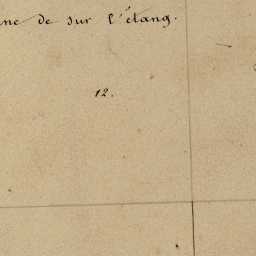 de sur l'étang.
12.